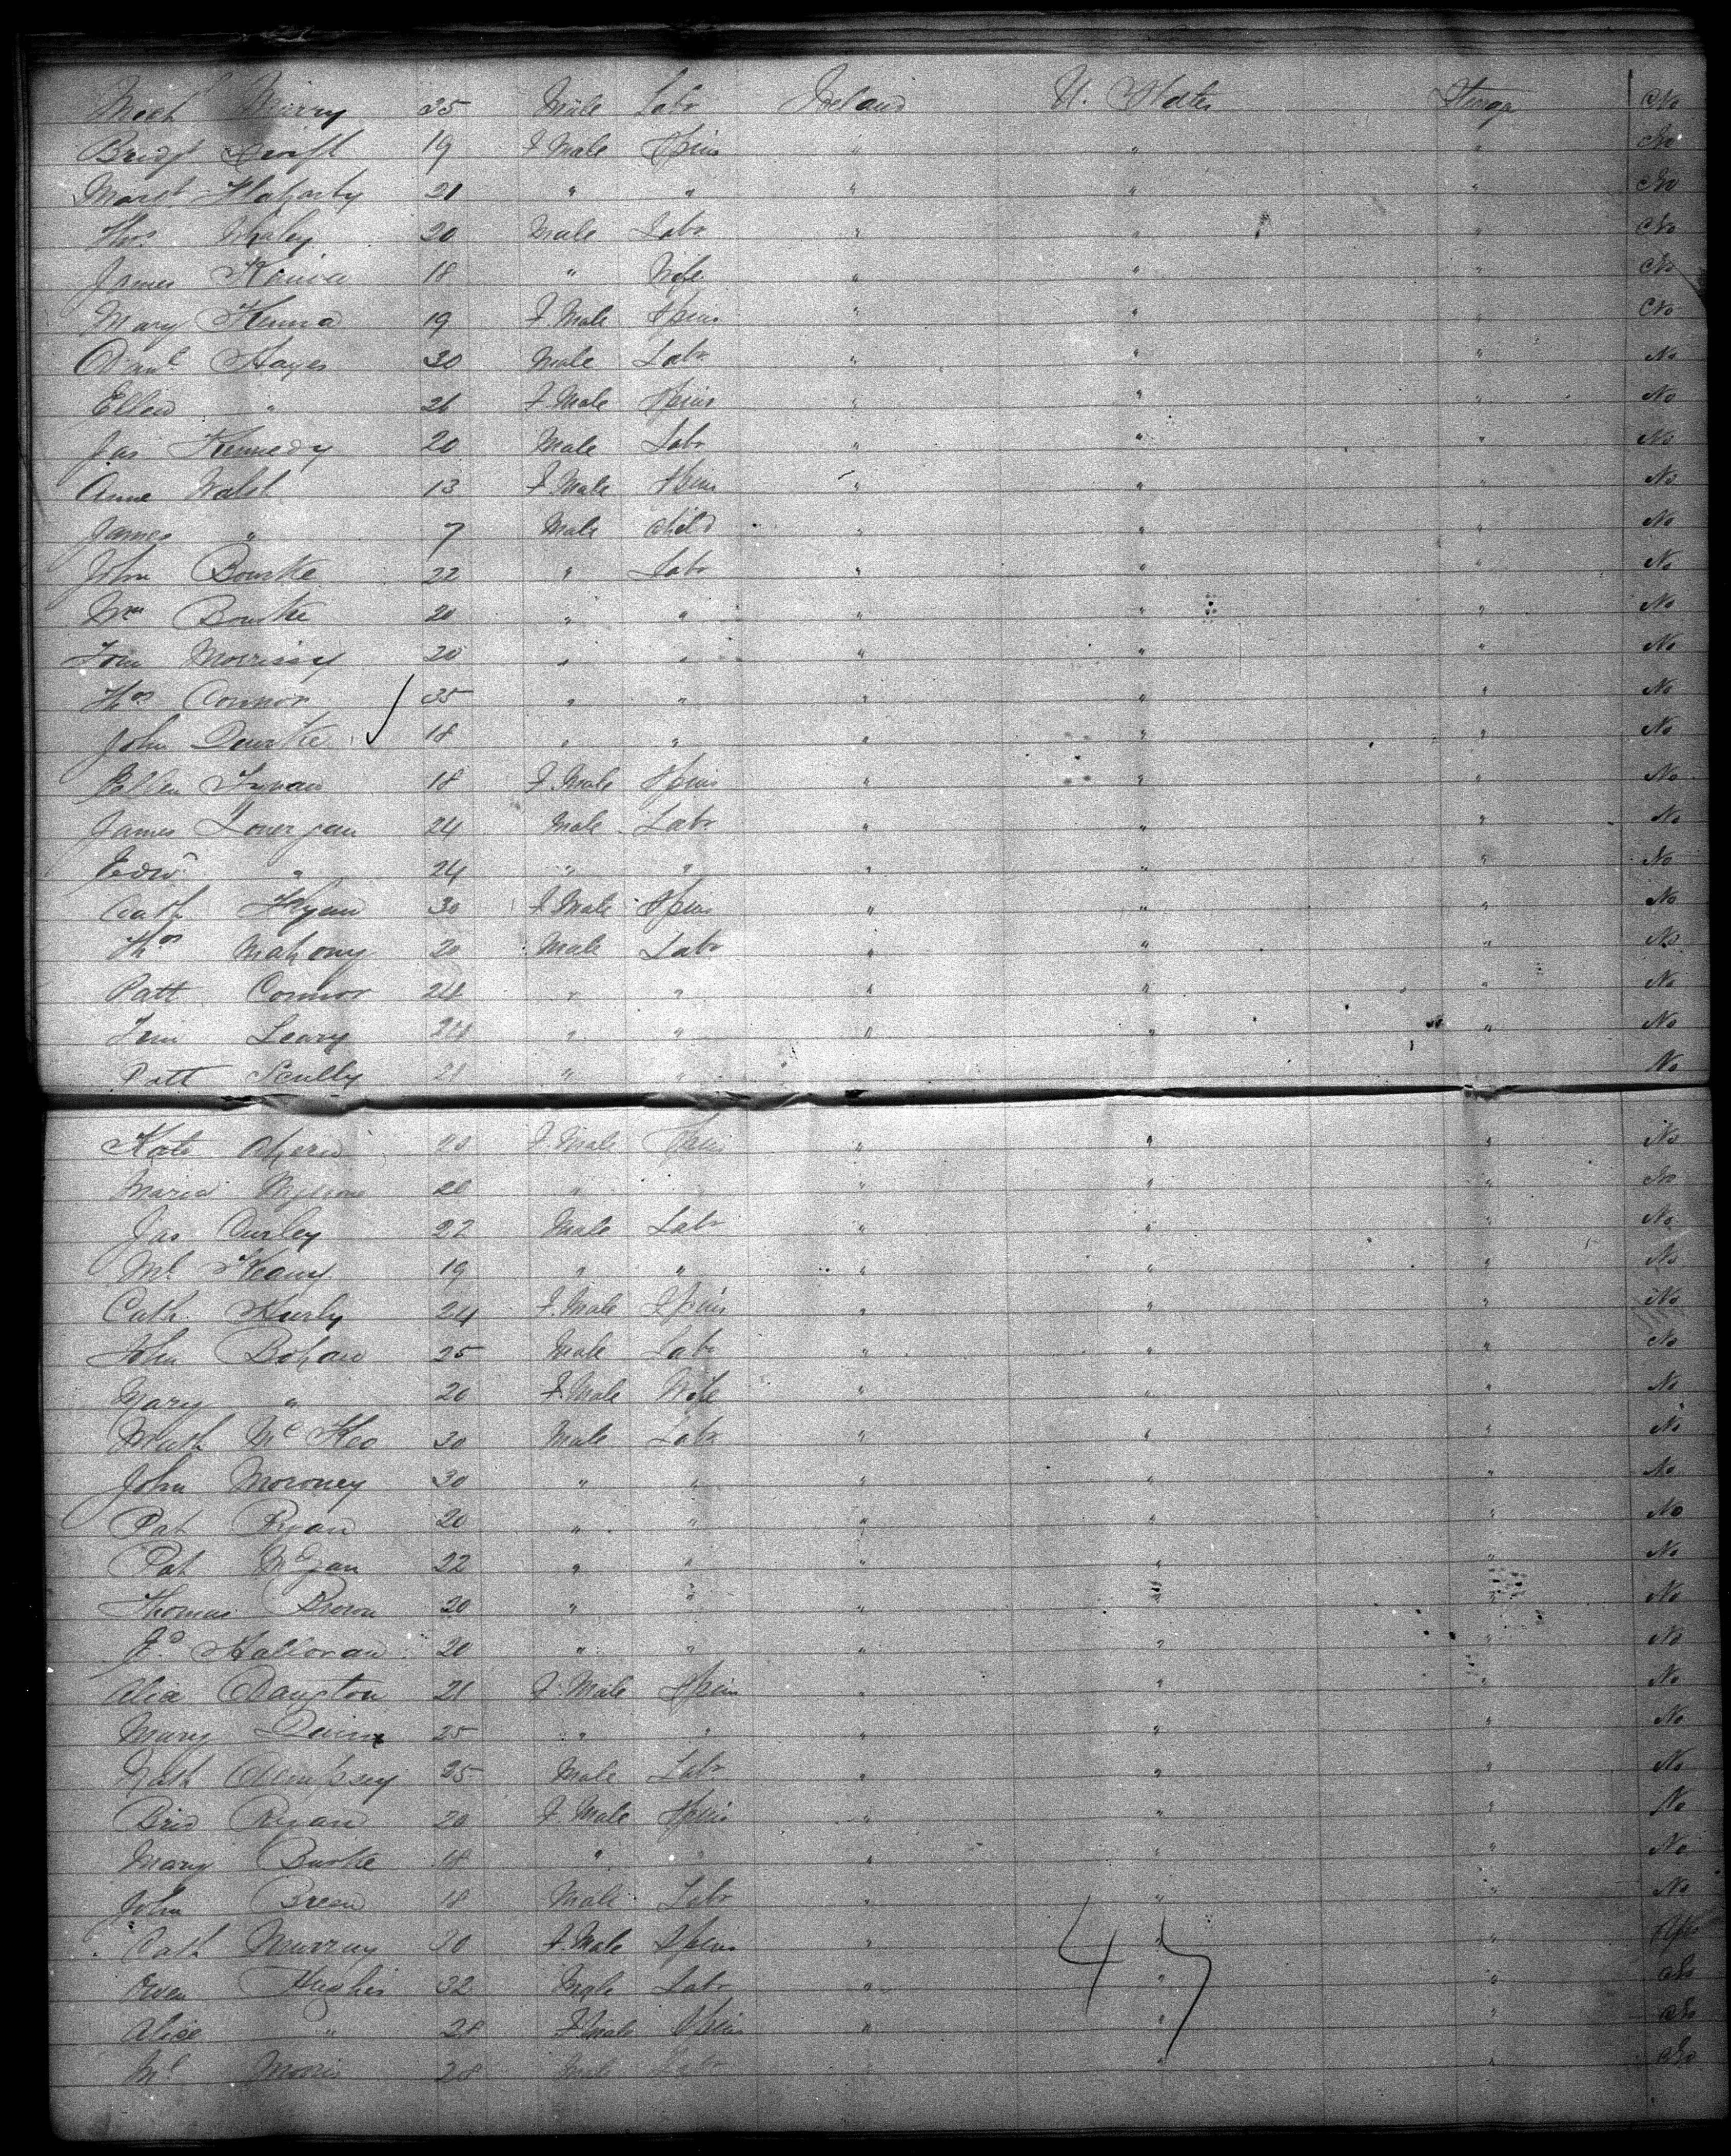 Mich Murry 35 Male Labr Ireland U. States Steerage No
Bridgt Swift 19 F Male Spins " " " No
Margt Flaharty 21 " " " " " No
Thos Whaley 20 Male Labr " " " No
James 18 " Wife " " " No
Mary Kenna 19 F. Male Spins " " " No
Danl Hayes 30 Male Labr " " " No
Ellen " 26 F. Male Spins " " " No
Jas Kennedy 20 Male Labr " " " No
Anne Walsh 13 F Male Spins " " " No
James " 7 Male Child " " " No
John Bourke 22 " Labr " " " No
Wm Bourke 20 " " " " " No
Tom Morrissy 20 " " " " " No
Thos Connor 35 " " " " " No
John Dourke 18 " " " " " No
Ellen Tynan 18 F. Male Spins " " " No
James Lonergan 24 Male Labr " " " No
Edwd " 24 " " " " " No
Cath Ryan 30 F Male Spins " " " No
Thos Mahony 20 Male Labr " " " No
Patt Connor 24 " " " " " No
Tim Leary 24 " " " " " No
Patt Scully 21 " " No
Kate Ahern 20 F Male Spins " " " No
Maria 20 " " " " No
Jas Curley 22 Male Labr " " " No
Ml Keany 19 " " " " " No
Cath. Kurly 24 F. Male Spins " " " No
John Bohan 25 Male Labr " " " No
Mary " 20 F. Male Wife " " " No
Math Mc Keo 30 Male Labr " " " No
John Moroney 30 " " " " " No
Pat Ryan 20 " " " " " No
Pat McGan 22 " " " " " No
Thomas Brown 20 " " " " " No
Jno Halloran 20 " " " " " No
Alice Dangton 21 F Male Spins " " " No
Mary Dunn 25 " " " " " No
Math Dempsey 25 Male Labr " " " No
Brid Ryan 20 F Male Spins " " " No
Mary Burke 18 " " " " " No
John Breen 18 Male Labr " " " No
Cath Murray 30 F. Male Spins " " " No
Owen Hughes 32 Male Labr " " " No
Alice " 28 F Male Spins " " " No
Ml Morris 28 Male Labr " " " No
47